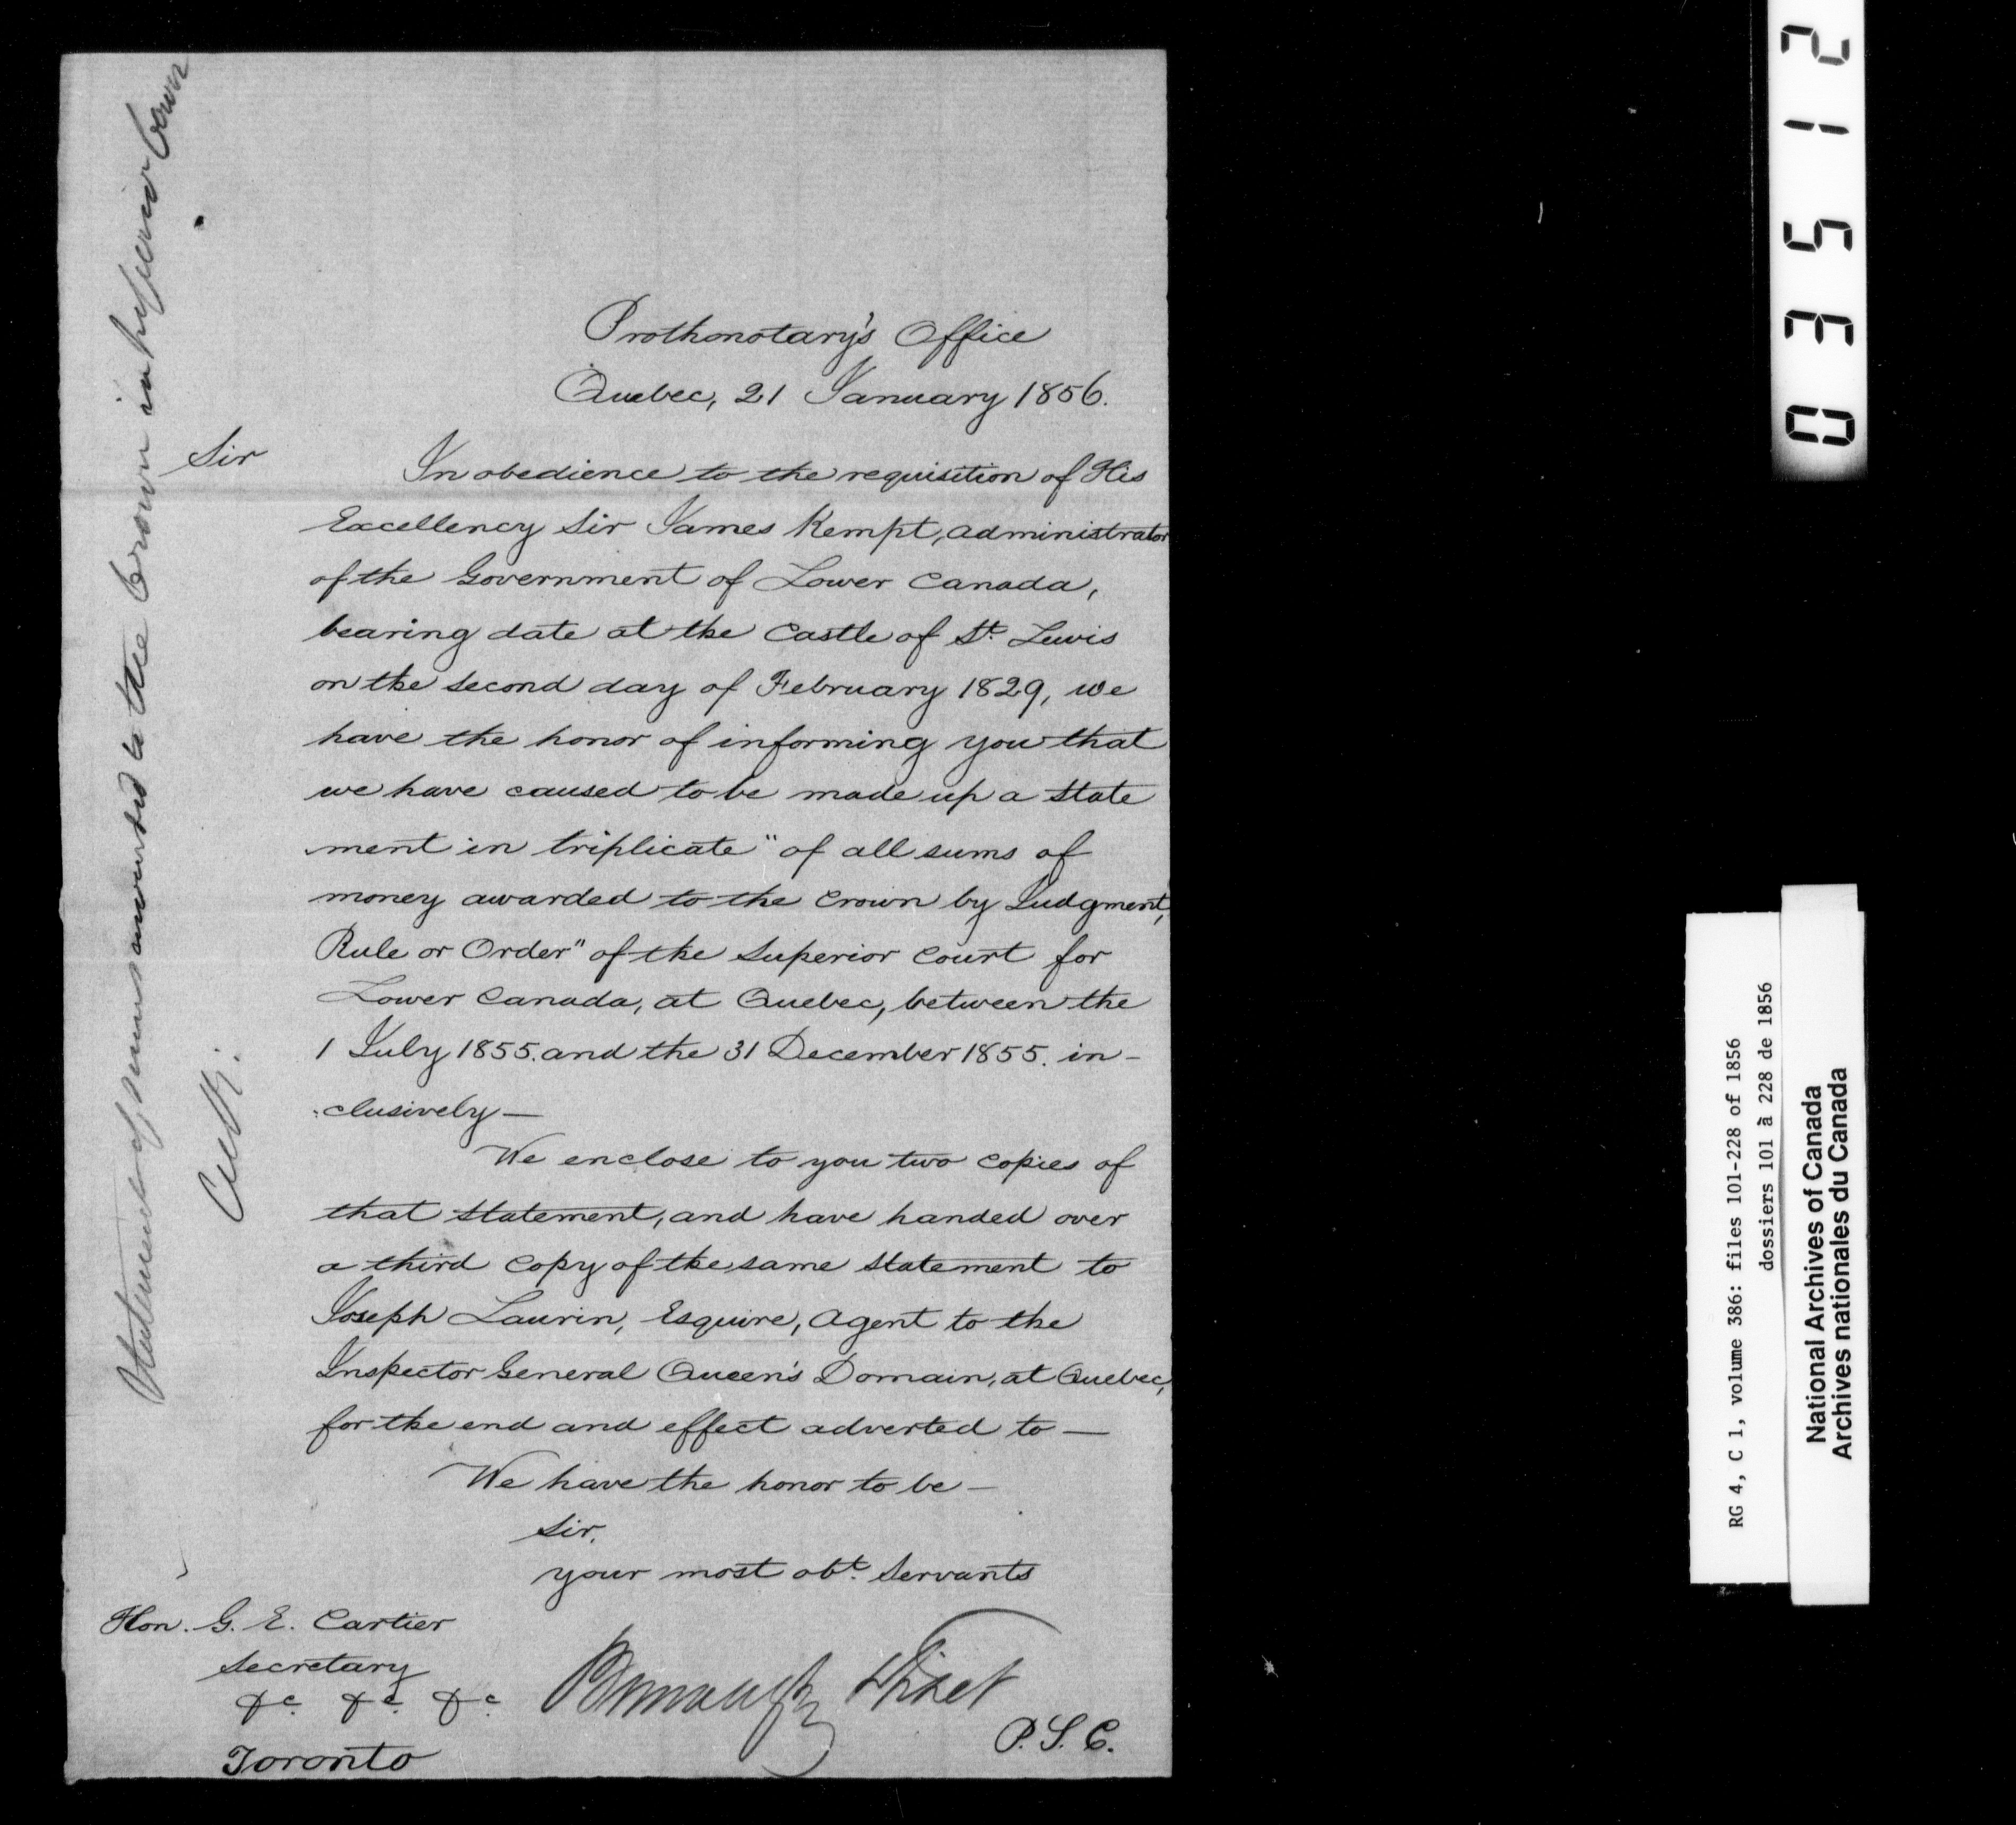 Prothonotary's Office
Quebec, 21 January 1856.
Sir
In obedience to the requisition of His
Excellency Sir James Kempt, administrator
of the Government of Lower Canada,
bearing date at the Castle of St. Lewis
on the second day of February 1829, we
have the honor of informing you that
we have caused to be made up a state
ment in triplicate "of all sums of
money awarded to the Crown by Judgment,
Rule or Order" of the Superior Court for
Lower Canada, at Quebec, between the
1 July 1855. and the 31 December 1855. in-
:clusively —
We enclose to you two copies of
that statement, and have handed over
a third copy of the same statement to
Joseph Laurin, Esquire, Agent to the
Inspector General Queen's Domain, at Quebec,
for the end and effect adverted to —
We have the honor to be —
Sir,
your most obt. servants
Hon. G. E. Cartier
Secretary
&c. &c. &c.
Toronto
Fiset
P. S. C.
Statement of sums awarded to the Crown in Superior Court
03512
RG 4, C 1, volume 386: files 101-228 of 1856
dossiers 101 à 228 de 1856
National Archives of Canada
Archives nationales du Canada